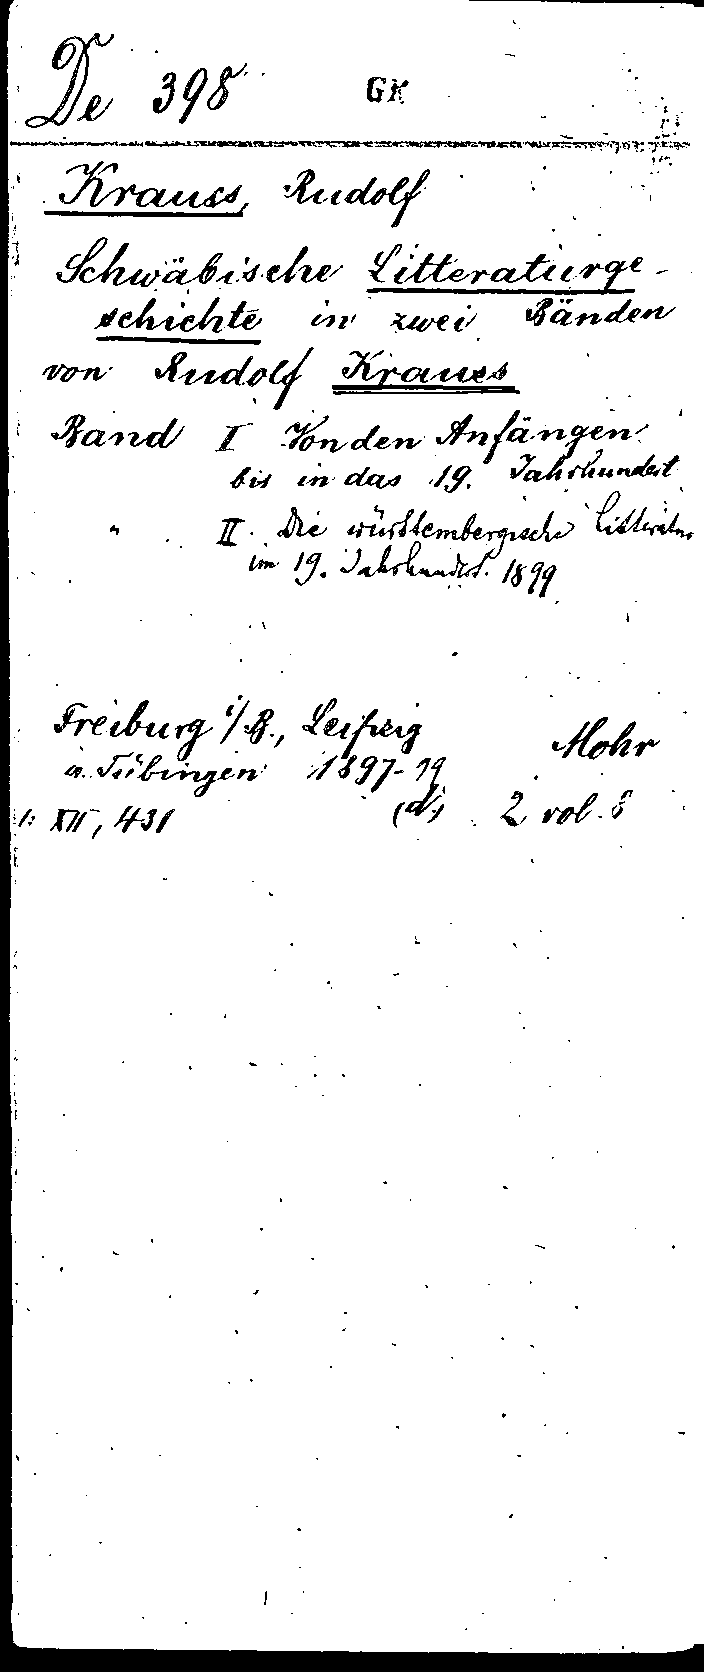 De 398 GK
Krauss, Rudolf
Schwäbische Litteraturge-
schichte in zwei Bänden
von Rudolf Krauss
Band I Von den Anfängen
bis in das 19. Jahrhundert
" II. Die württembergische Litteratur
im 19. Jahrhundert. 1899
Freiburg i/B., Leipzig Mohr
u. Tübingen 1897-99
1: XII, 431 (d) 2 vol. 8